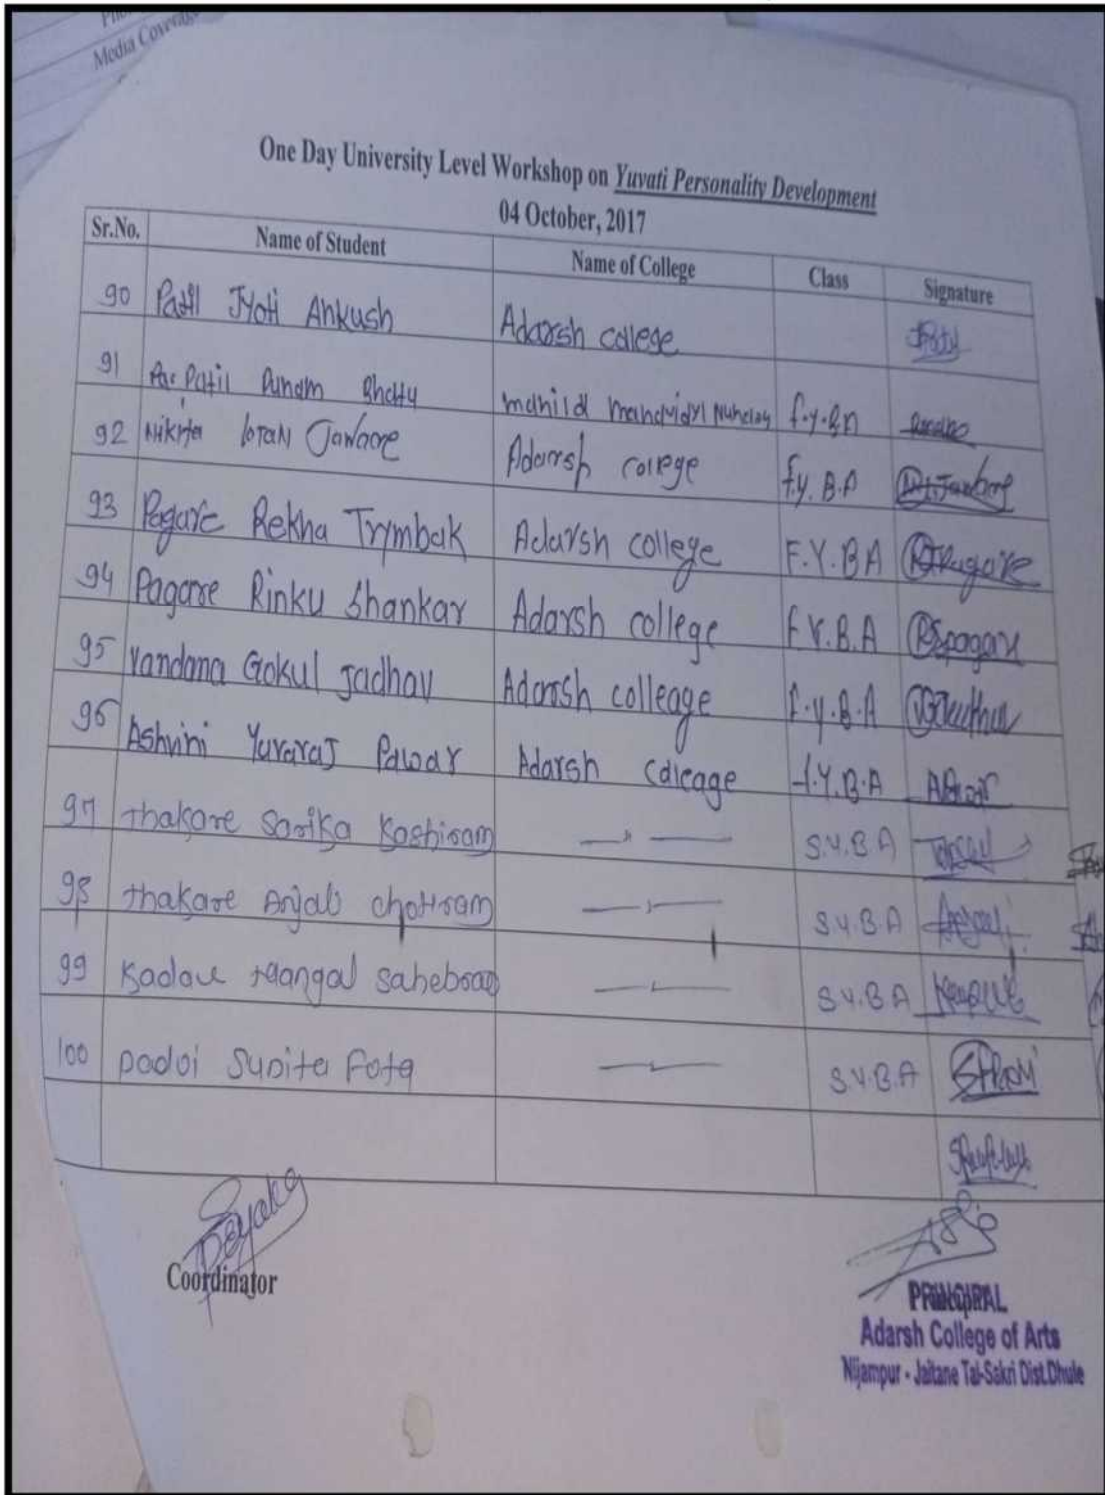 Media Coverage
One Day University Level Workshop on Yuvati Personality Development
04 October, 2017
Sr.No. Name of Student Name of College Class Signature
90 Patil Jyoti Ankush Adarsh college
91 Patil Punam f.y.BA
92 Nikita Adarsh college f.y. B.A
93 Pagare Rekha Trymbak Adarsh college F.Y.BA RTPagare
94 Pagare Rinku Shankar Adarsh college F.Y.B.A RSpagare
95 Vandana Gokul Jadhav Adarsh colleage f.y.B.A
96 Ashvini Yuvaraj Pawar Adarsh colleage f.Y.B.A
97 Thakare Sarika Kashiram —"— S.Y.B.A
98 Thakare Anjali chotiram —"— S.Y.B.A
99 Kadave Mangal sahebrao —"— S.Y.B.A
100 padvi Sunita Fota —"— S.Y.B.A
Coordinator
PRINCIPAL
Adarsh College of Arts
Nijampur - Jaitane Tal-Sakri Dist.Dhule